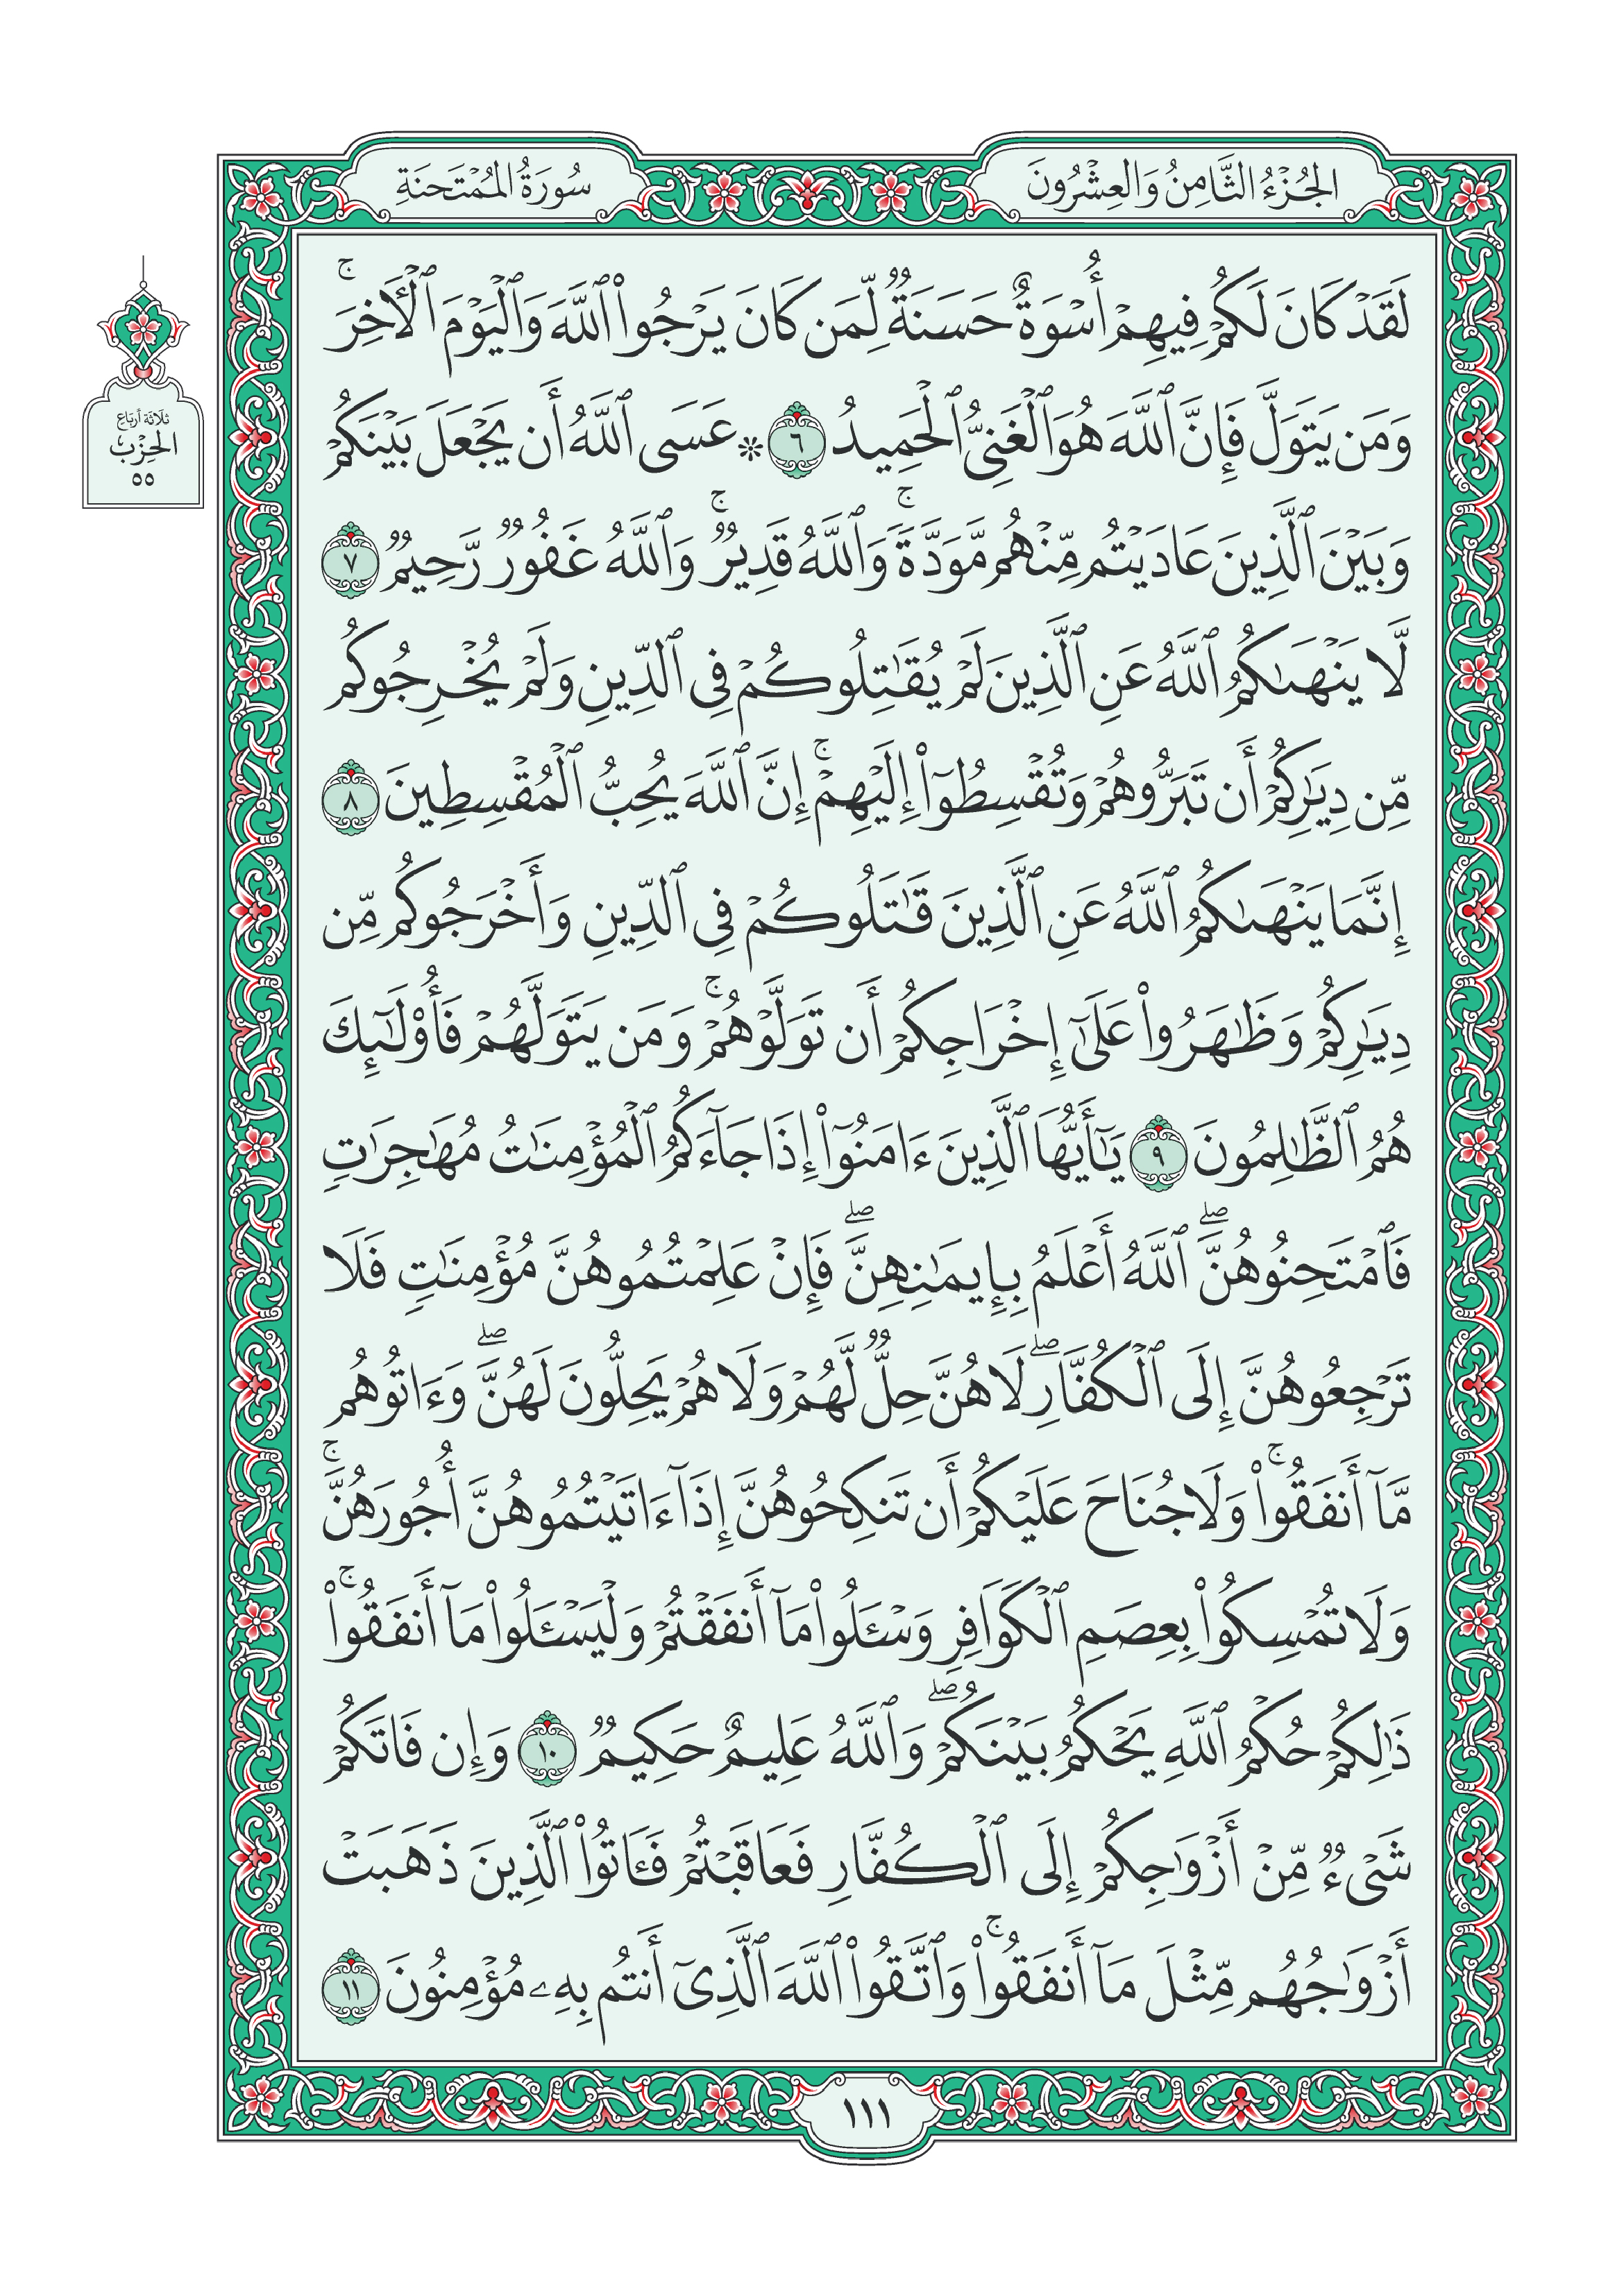 الجُزْءُ الثَّامِنُ وَالعِشْرُونَ
سُورَةُ المُمْتَحنَةِ
لَقَدْ كَانَ لَكُمْ فِيهِمْ أُسْوَةٌ حَسَنَةٌ لِّمَن كَانَ يَرْجُوا۟ ٱللَّهَ وَٱلْيَوْمَ ٱلْأَخِرَ ۚ
وَمَن يَتَوَلَّ فَإِنَّ ٱللَّهَ هُوَ ٱلْغَنِىُّ ٱلْحَمِيدُ ٦ ۞ عَسَى ٱللَّهُ أَن يَجْعَلَ بَيْنَكُمْ
وَبَيْنَ ٱلَّذِينَ عَادَيْتُم مِّنْهُم مَّوَدَّةً ۚ وَٱللَّهُ قَدِيرٌ ۚ وَٱللَّهُ غَفُورٌ رَّحِيمٌ ٧
لَّا يَنْهَىٰكُمُ ٱللَّهُ عَنِ ٱلَّذِينَ لَمْ يُقَٰتِلُوكُمْ فِى ٱلدِّينِ وَلَمْ يُخْرِجُوكُم
مِّن دِيَٰرِكُمْ أَن تَبَرُّوهُمْ وَتُقْسِطُوٓا۟ إِلَيْهِمْ ۚ إِنَّ ٱللَّهَ يُحِبُّ ٱلْمُقْسِطِينَ ٨
إِنَّمَا يَنْهَىٰكُمُ ٱللَّهُ عَنِ ٱلَّذِينَ قَٰتَلُوكُمْ فِى ٱلدِّينِ وَأَخْرَجُوكُم مِّن
دِيَٰرِكُمْ وَظَٰهَرُوا۟ عَلَىٰٓ إِخْرَاجِكُمْ أَن تَوَلَّوْهُمْ ۚ وَمَن يَتَوَلَّهُمْ فَأُو۟لَٰٓئِكَ
هُمُ ٱلظَّٰلِمُونَ ٩ يَٰٓأَيُّهَا ٱلَّذِينَ ءَامَنُوٓا۟ إِذَا جَآءَكُمُ ٱلْمُؤْمِنَٰتُ مُهَٰجِرَٰتٍ
فَٱمْتَحِنُوهُنَّ ۖ ٱللَّهُ أَعْلَمُ بِإِيمَٰنِهِنَّ ۖ فَإِنْ عَلِمْتُمُوهُنَّ مُؤْمِنَٰتٍ فَلَا
تَرْجِعُوهُنَّ إِلَى ٱلْكُفَّارِ ۖ لَا هُنَّ حِلٌّ لَّهُمْ وَلَا هُمْ يَحِلُّونَ لَهُنَّ ۖ وَءَاتُوهُم
مَّآ أَنفَقُوا۟ ۚ وَلَا جُنَاحَ عَلَيْكُمْ أَن تَنكِحُوهُنَّ إِذَآ ءَاتَيْتُمُوهُنَّ أُجُورَهُنَّ ۚ
وَلَا تُمْسِكُوا۟ بِعِصَمِ ٱلْكَوَافِرِ وَسْـَٔلُوا۟ مَآ أَنفَقْتُمْ وَلْيَسْـَٔلُوا۟ مَآ أَنفَقُوا۟ ۚ
ذَٰلِكُمْ حُكْمُ ٱللَّهِ يَحْكُمُ بَيْنَكُمْ ۖ وَٱللَّهُ عَلِيمٌ حَكِيمٌ ١٠ وَإِن فَاتَكُمْ
شَىْءٌ مِّنْ أَزْوَٰجِكُمْ إِلَى ٱلْكُفَّارِ فَعَاقَبْتُمْ فَـَٔاتُوا۟ ٱلَّذِينَ ذَهَبَتْ
أَزْوَٰجُهُم مِّثْلَ مَآ أَنفَقُوا۟ ۚ وَٱتَّقُوا۟ ٱللَّهَ ٱلَّذِىٓ أَنتُم بِهِۦ مُؤْمِنُونَ ١١
ثلَاثَة أربَاع
الحِزْب
٥٥
١١١